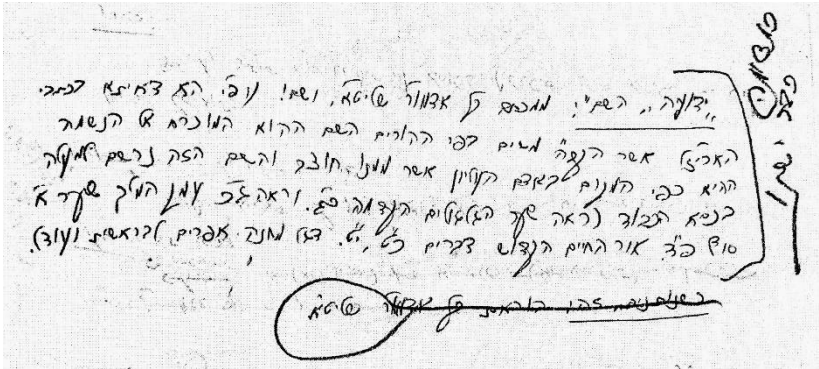 ידועה,, השם": ק' אדמו"ר שליט"א, ושם: הא דאיתא בכתבי
האריז"ל אשר הקב"ה משים בפי ההורים השם ההוא המוכרח אל הנשמה
ההיא כפי המקום באדם העליון אשר ממנו חוצב והשם הזה נרשם למעלה
בכסא הכבוד (ראה שער הגלגולים הקדמה כ"ג. וראה ג"כ עמק המלך שער א'
סוף פ"ד. אור החיים הקדוש דברים כט, יט. דגל מחנה אפרים לבראשית ועוד).
זה: הוראת ק' אדמו"ר שליט"א